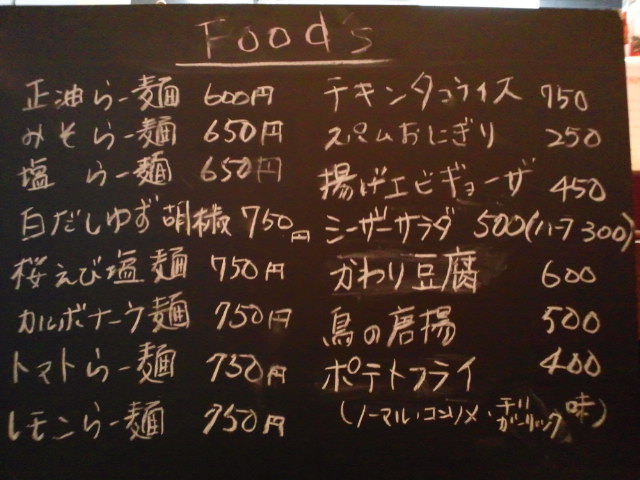 Food's
正油らー麺 600円
みそらー麺 650円
塩らー麺 650円
白だしゆず胡椒 750円
桜えび塩麺 750円
カルボナーラ麺 750円
トマトらー麺 750円
レモンらー麺 750円
チキンタコライス 750
スパムおにぎり 250
揚げエビギョーザ 450
シーザーサラダ 500(ハーフ300)
かわり豆腐 600
鳥の唐揚 500
ポテトフライ 400
(ノーマル・コンソメ・チリガーリック味)